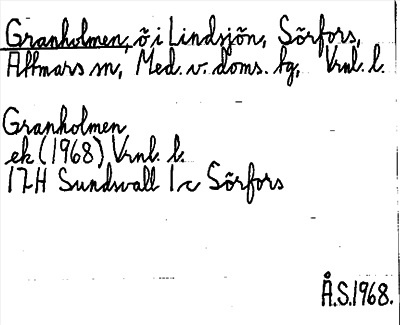 Granholmen, ö i Lindsjön, Sörfors,
Attmars sn, Med. v. doms. tg, Vrnl. l.
Granholmen
ek (1968) Vrnl. l.
17H Sundsvall 1c Sörfors
Å.S.1968.